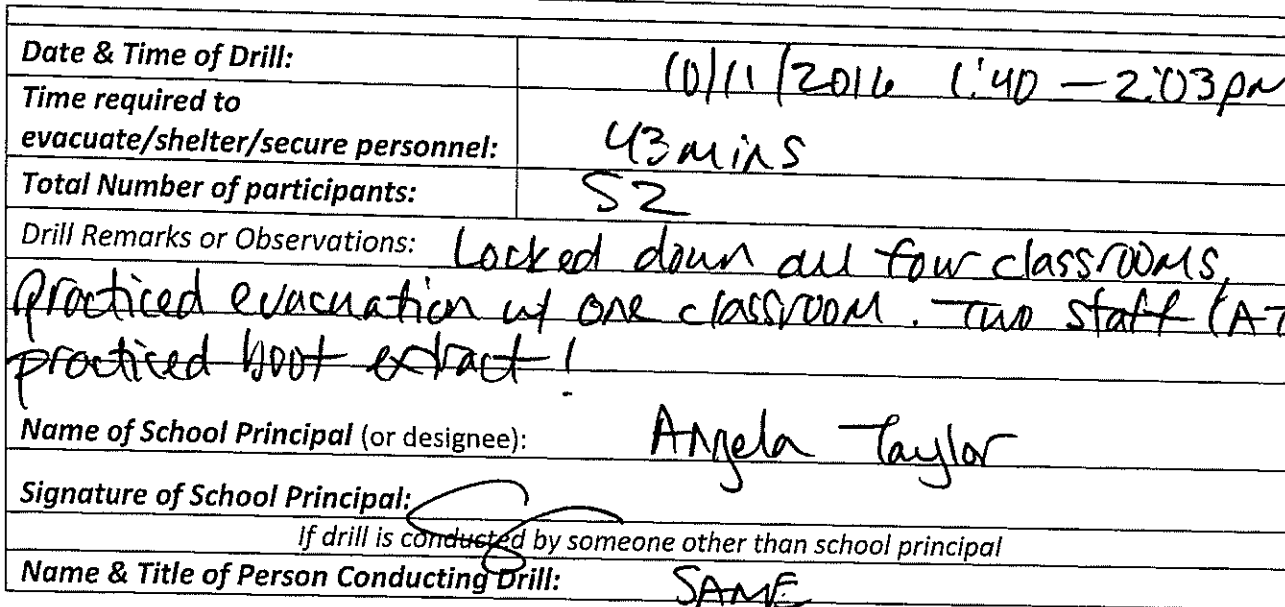 Date & Time of Drill: 10/11/2016 1:40 – 2:03pm
Time required to
evacuate/shelter/secure personnel: 43 mins
Total Number of participants: 52
Drill Remarks or Observations: Locked down all four classrooms,
practiced evacuation w/ one classroom. Two staff (AT
practiced boot extract!
Name of School Principal (or designee): Angela Taylor
Signature of School Principal:
If drill is conducted by someone other than school principal
Name & Title of Person Conducting Drill: SAME